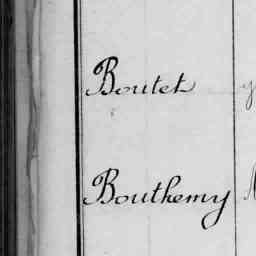 Boutet
Bouthemy